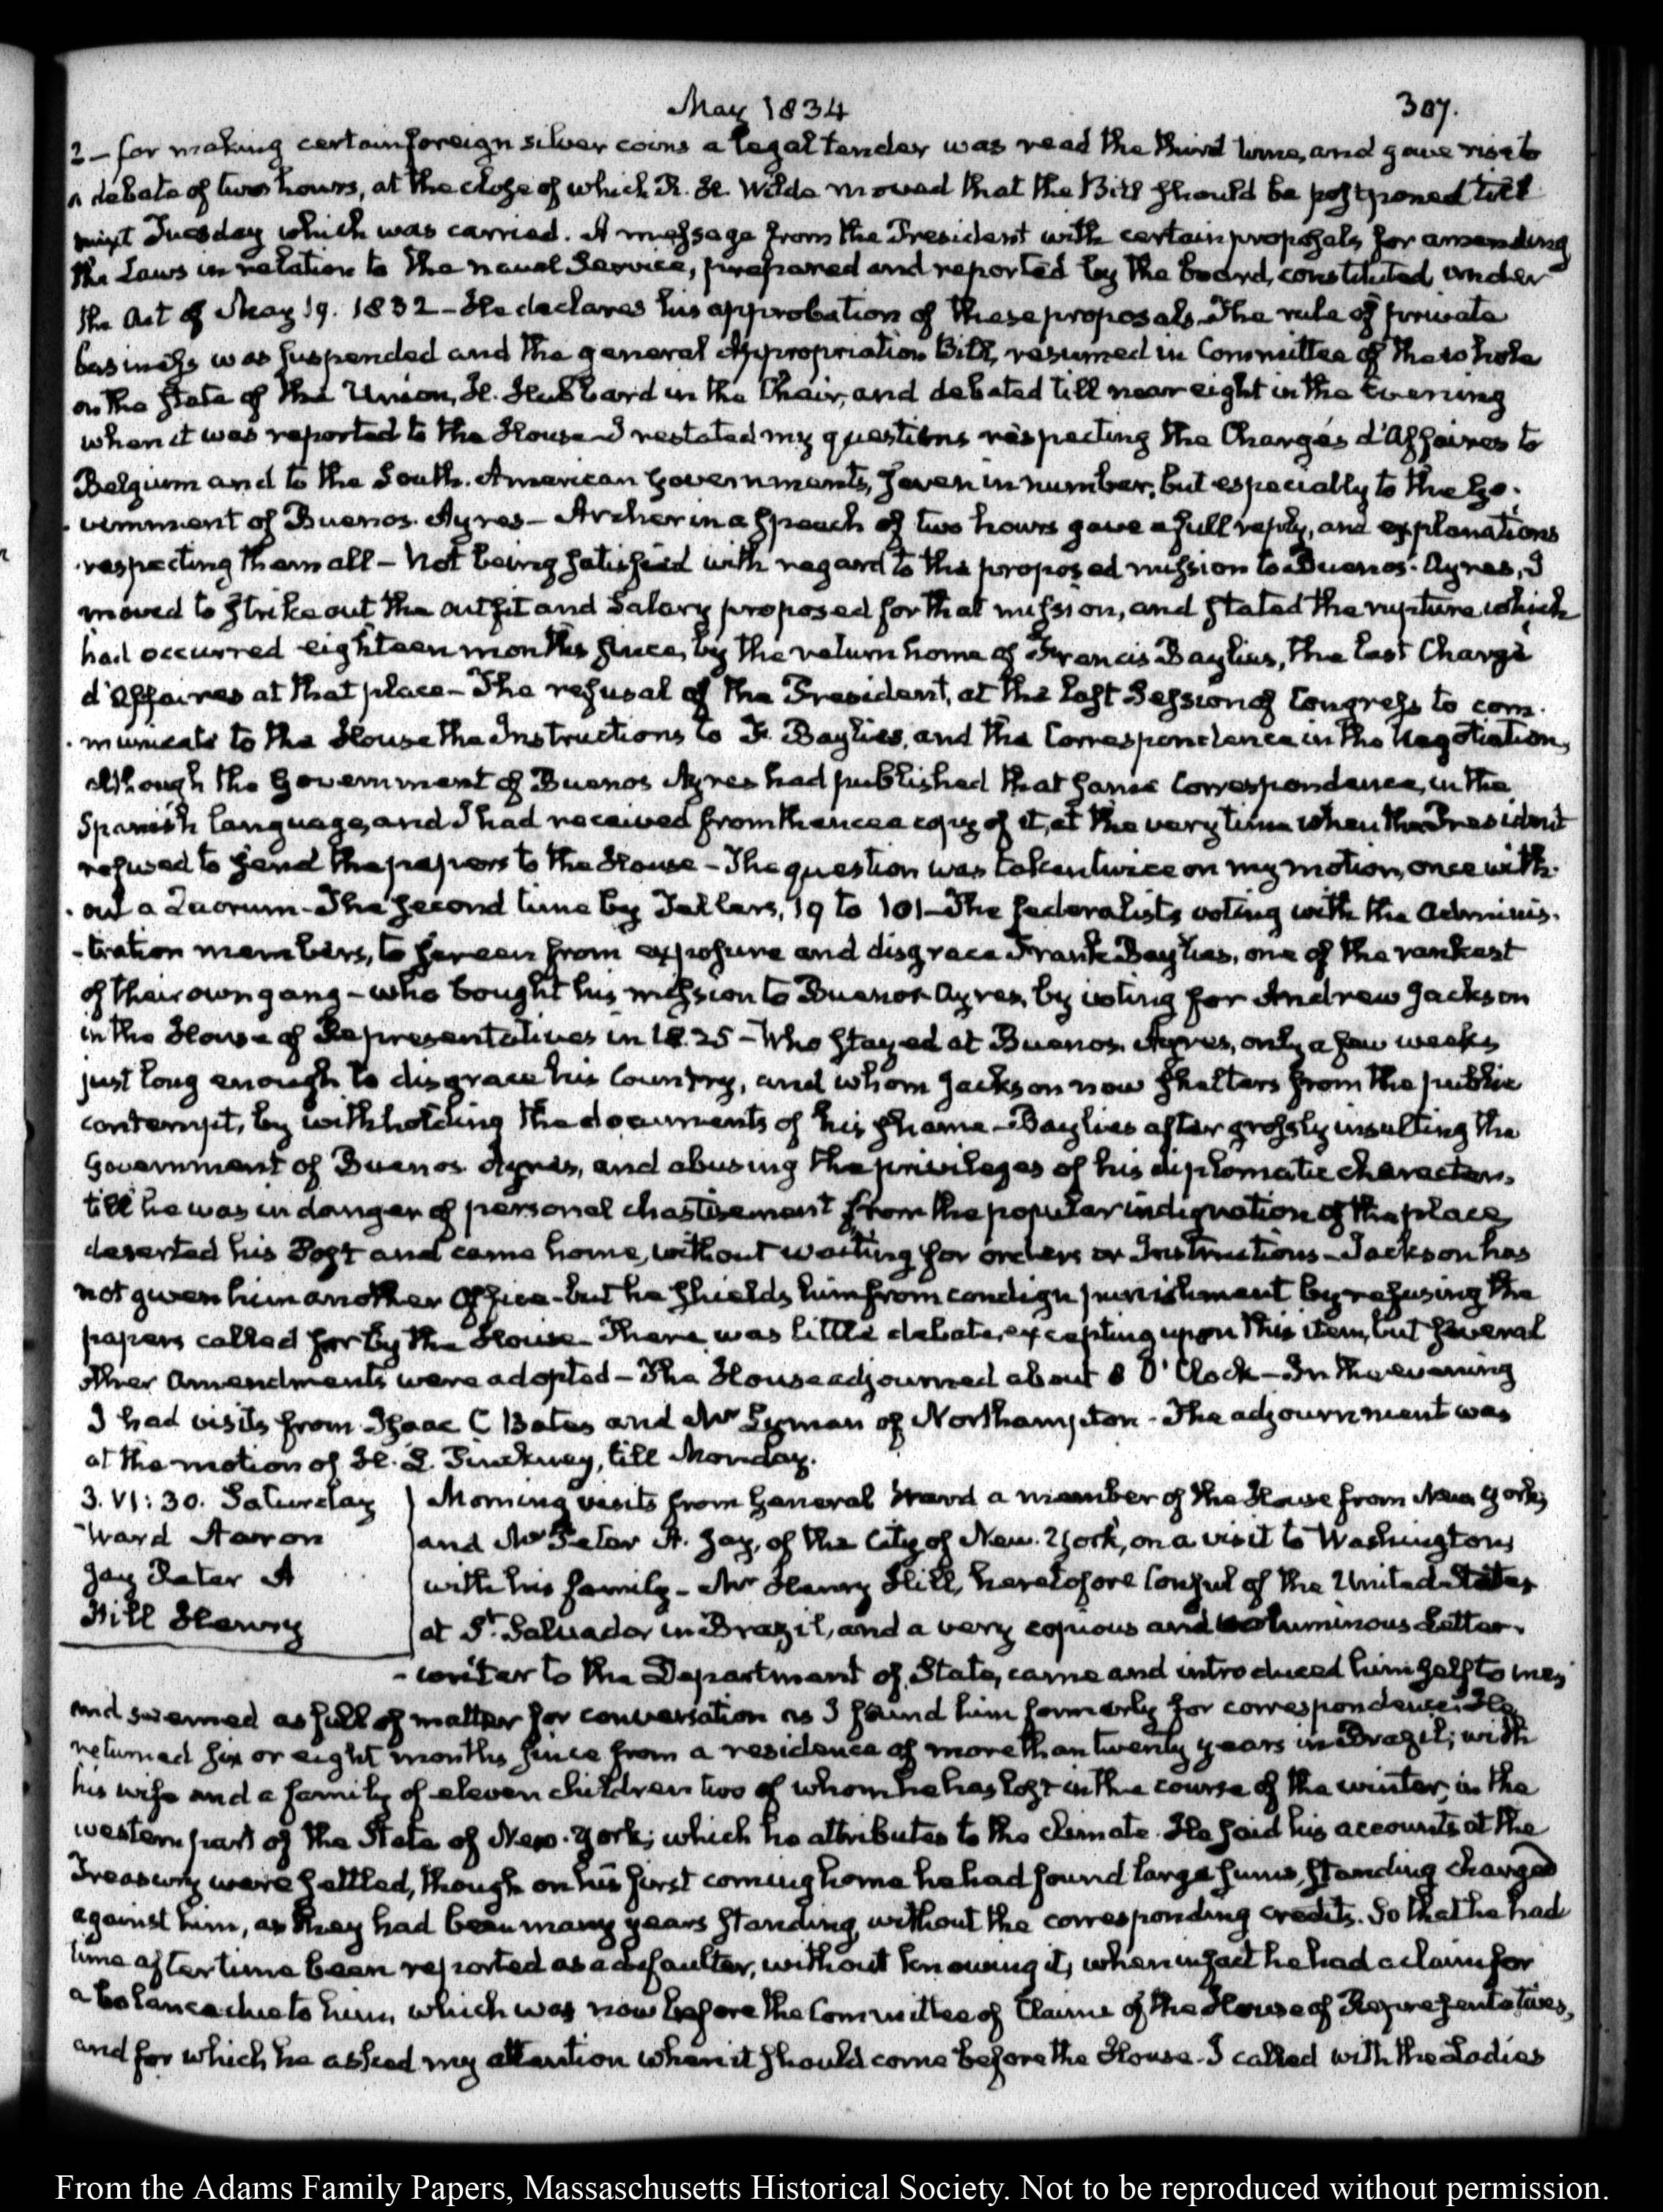 May 1834
307.
2 – for making certain foreign silver coins a legal tender was read the third time, and gave rise to
a debate of two hours, at the close of which R. H. Wilde moved that the Bill should be postponed till
next Tuesday which was carried. A message from the President with certain proposals for amending
the Laws in relation to the naval Service, prepared and reported by the board, constituted under
the Act of May 19. 1832 – He declares his approbation of these proposals. The rule of private
business was suspended and the general Appropriation Bill, resumed in Committee of the whole
on the State of the Union, H. Hubbard in the Chair, and debated till near eight in the Evening
when it was reported to the House – I restated my questions respecting the Chargés d'Affaires to
Belgium and to the South-American Governments, seven in number, but especially to the Go-
-vernment of Buenos-Ayres – Archer in a speech of two hours gave a full reply, and explanations
respecting them all – Not being satisfied with regard to the proposed mission to Buenos-Ayres, I
moved to strike out the outfit and Salary proposed for that mission, and stated the rupture which
had occurred eighteen months since, by the return home of Francis Baylies, the last Chargé
d'Affaires at that place – The refusal of the President, at the last Session of Congress to com-
-municate to the House the Instructions to F. Baylies, and the Correspondence in the Negotiation,
although the Government of Buenos Ayres had published that same Correspondence, in the
Spanish language, and I had received from thence a copy of it, at the very time when the President
refused to send the papers to the House – The question was taken twice on my motion, once with-
-out a Quorum – The second time by Tellers, 19 to 101 – The federalists voting with the Adminis-
-tration members, to screen from exposure and disgrace Frank Baylies, one of the rankest
of their own gang – who bought his mission to Buenos-Ayres, by voting for Andrew Jackson
in the House of Representatives in 1825 – Who stayed at Buenos Ayres, only a few weeks
just long enough to disgrace his Country, and whom Jackson now shelters from the public
contempt, by withholding the documents of his shame – Baylies after grossly insulting the
Government of Buenos Ayres, and abusing the privileges of his diplomatic character,
till he was in danger of personal chastisement from the popular indignation of the place,
deserted his Post and came home, without waiting for orders or Instructions – Jackson has
not given him another Office – but he shields him from condign punishment by refusing the
papers called for by the House – There was little debate, excepting upon this item, but several
other Amendments were adopted – The House adjourned about 8 O'Clock – In the evening
I had visits from Isaac C Bates and Mr Lyman of Northampton – The adjournment was
at the motion of H. L. Pinckney, till Monday.
3. VI:30. Saturday
Ward Aaron
Jay Peter A
Hill Henry
Morning visits from General Ward a member of the House from New York,
and Mr Peter A. Jay, of the City of New-York, on a visit to Washington,
with his family – Mr Henry Hill, heretofore Consul of the United States
at St. Salvador in Brazil, and a very copious and voluminous Letter-
-writer to the Department of State, came and introduced himself to me,
and seemed as full of matter for conversation as I found him formerly for correspondence. He
returned six or eight months since from a residence of more than twenty years in Brazil; with
his wife and a family of eleven children two of whom he has lost in the course of the winter, in the
western part of the State of New-York; which he attributes to the climate. He said his accounts at the
Treasury were settled, though on his first coming home he had found large sums, standing charged
against him, as they had been many years standing, without the corresponding credits. So that he had
time after time been reported as a defaulter, without knowing it, when in fact he had a claim for
a balance due to him, which was now before the Committee of Claims of the House of Representatives,
and for which he asked my attention when it should come before the House. I called with the Ladies
From the Adams Family Papers, Massachusetts Historical Society. Not to be reproduced without permission.